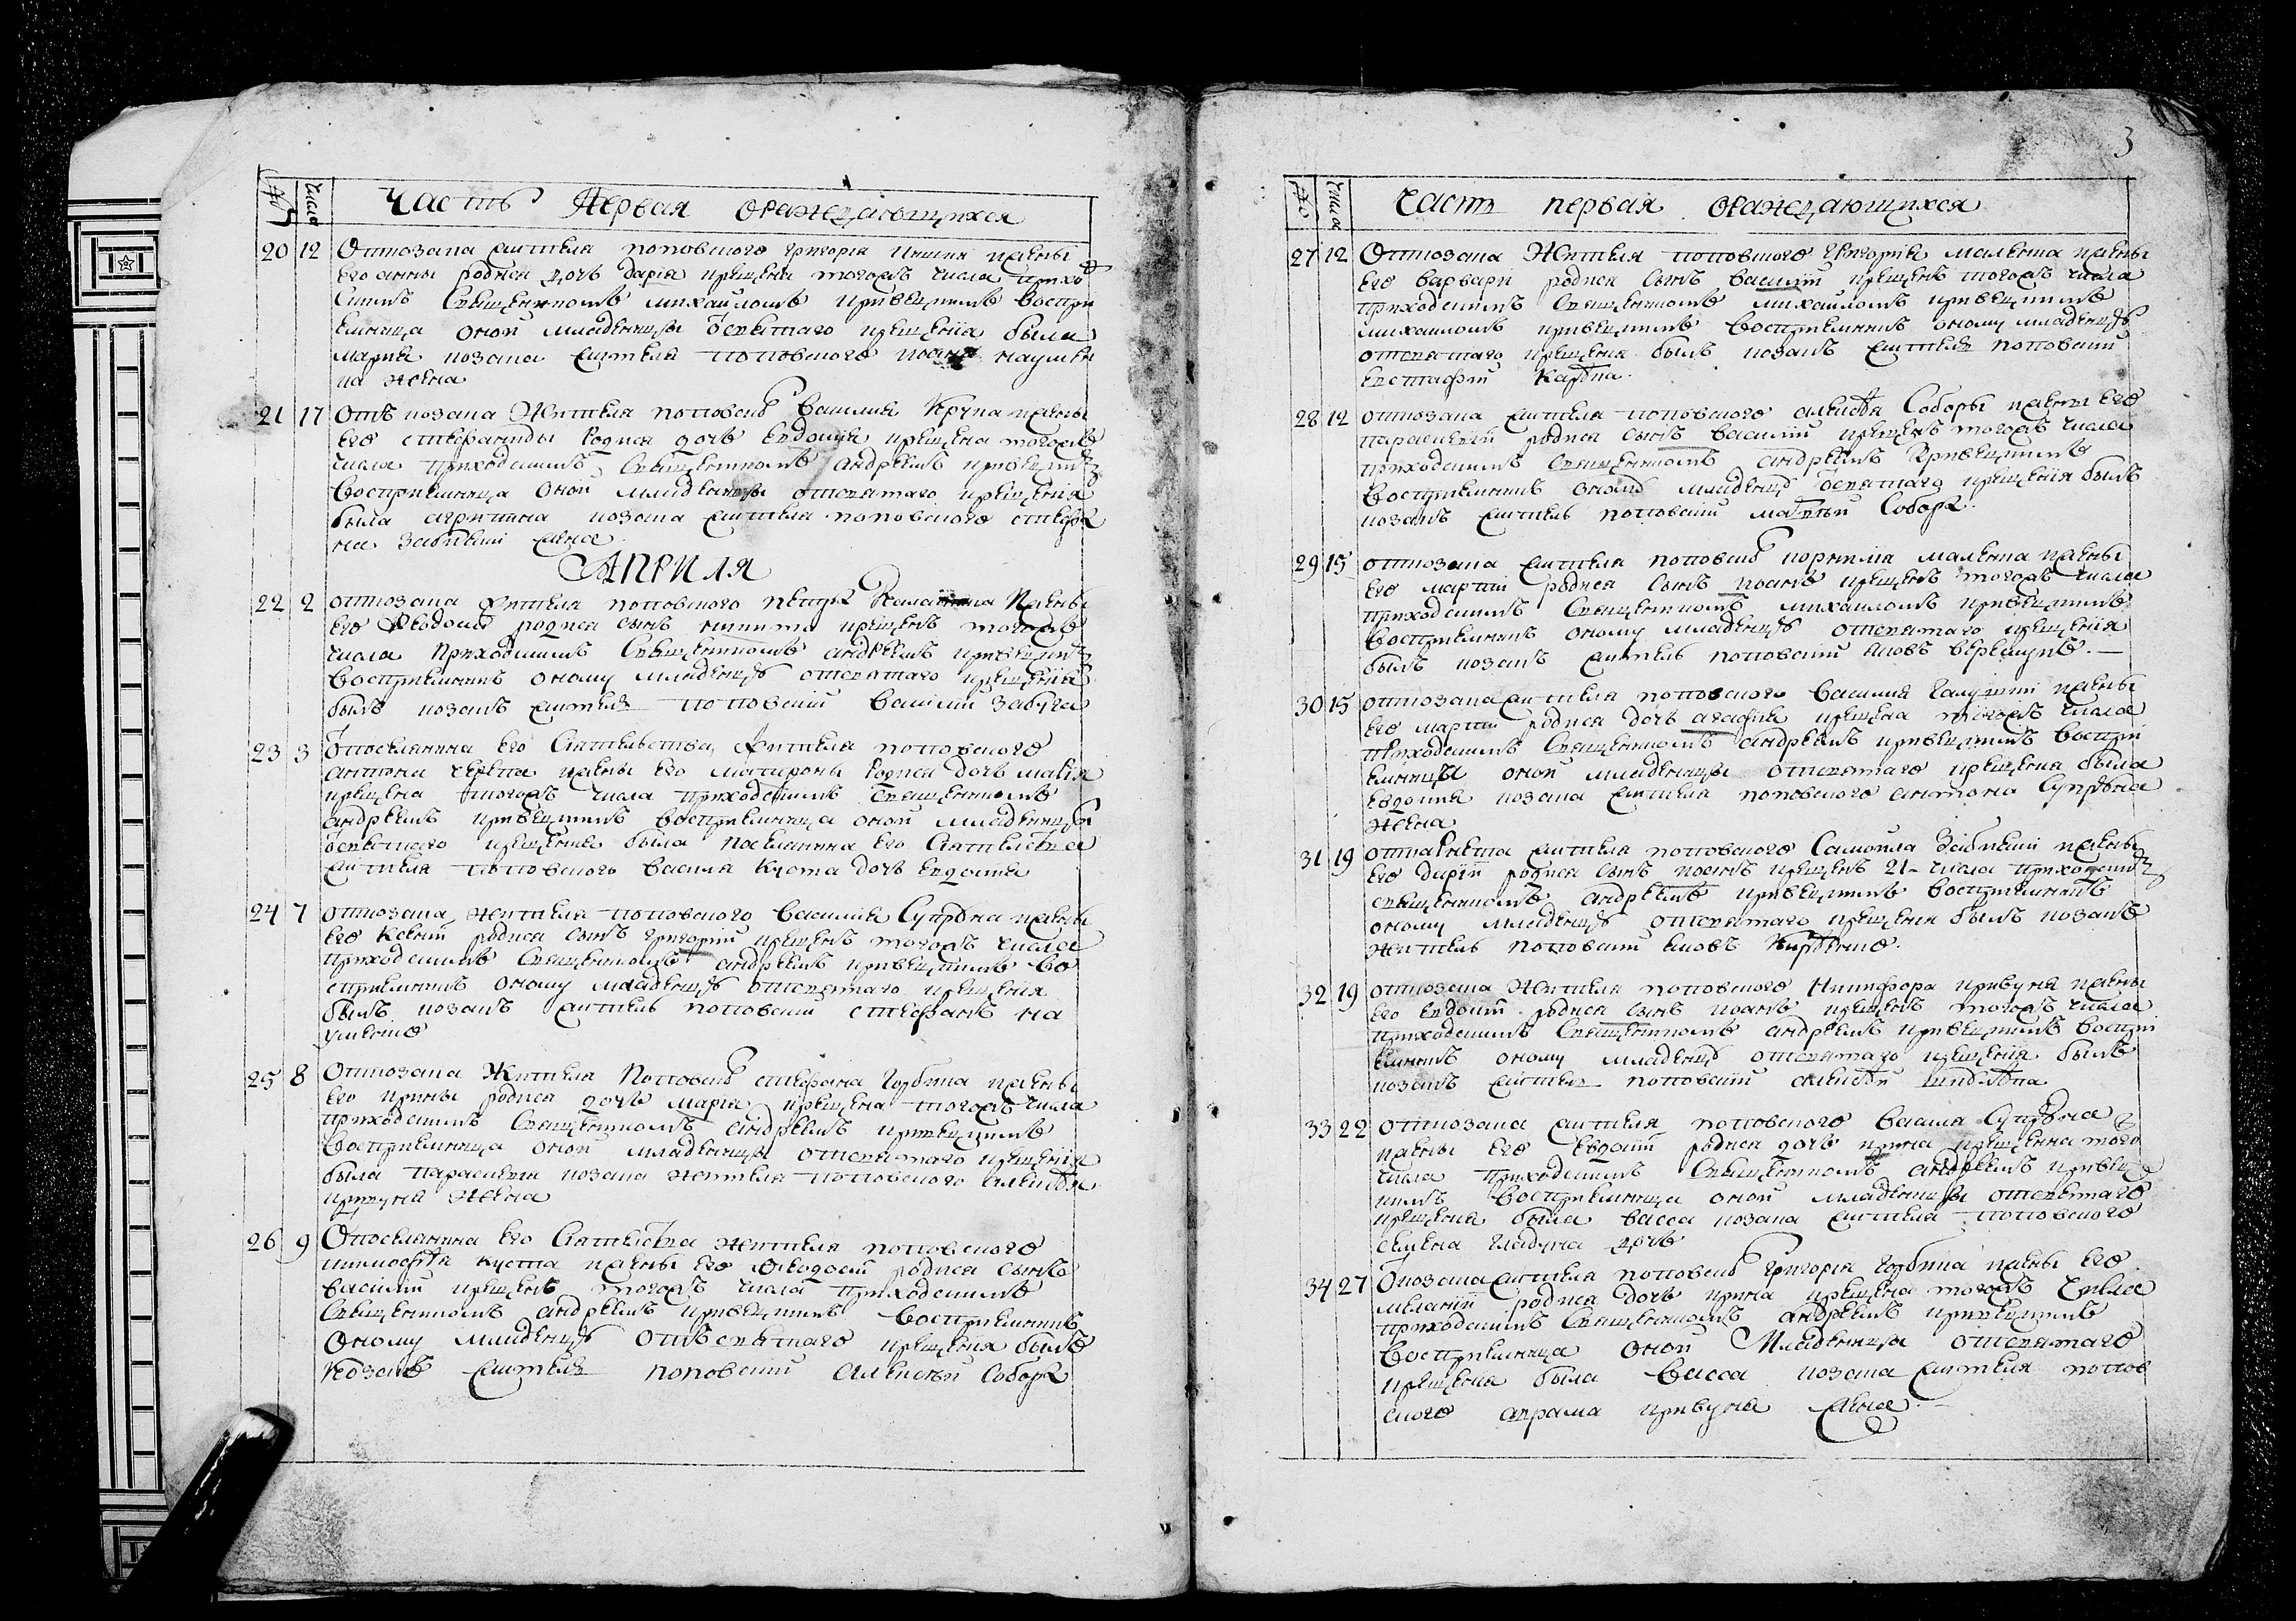 № Число Часть Первая ораждающихся
20 12 Откозака жителя поповского григорія жени
его анны родися дочь дарія крещена тогожъ числа прихо
скимъ Священникомъ михаиломъ кривецкимъ воспри
емница оной младеницы отсвятаго крещенія была
марія козака жителя поповского наумен
ка жена
21 17 Отъ козака Жителя поповског Василия Крука жены
его стефаниды родися дочь Евдокия крещена тогожъ
числа приходскимъ Священникомъ андреемъ кривецким
восприемница оной младеницы отсвятаго крещенія
была агрипина козака жителя поповского стефа
на забияки жена
АПРИЛЯ
22 2 откозака жителя поповского петра жены
его Феодосии родися сынъ никита крещенъ тогожъ
числа приходскимъ Священникомъ андреемъ кривецким
восприемникъ оному младенцу отсвятаго крещенія
былъ козакъ житель поповский василий забіяка
23 3 отпосклянина его Сиятельства жителя поповского
антона жены его матроны родися дочь марія
крещена тогожъ числа приходскимъ священникомъ
андреемъ кривецкимъ восприемница оной младеницы
отсвятаго крещенія была посклянина его Сиятельства
жителя поповского василя куста дочь Евдокия
24 7 откозака жителя поповского василия Супруна жены
его ксении родися сынъ григорий крещенъ тогожъ числа
приходскимъ Священникомъ андреемъ кривецкимъ во
сприемникъ оному младенцу отсвятаго крещенія
былъ козакъ житель поповский стефанъ на
уменко
25 8 Откозака Жителя Поповског стефана Горбика жены
его ирины родися дочь марія крещена тогожъ числа
приходскимъ Священникомъ андреемъ кривецкимъ
восприемница оной младеницы отсвятаго крещенія
была параскевия козака жителя поповского алексѣя
кривуна жена
26 9 Отпосклянина его Сиятелства жителя поповского
тимофѣя куста жены его Феодосии родися сынъ
василий крещенъ тогожъ числа приходскимъ
Священникомъ андреемъ кривецкимъ восприемникъ
оному младенцу отъсвятаго крещенія былъ
козакъ житель поповский Алексѣй Собора
3
№ Число Часть первая ораждающихся
27 12 Откозака Жителя поповского Григория малента жены
его варвари родися сынъ василий крещенъ тогожъ числа
приходскимъ Священникомъ михаиломъ кривецкимъ
михаиломъ кривецкимъ восприемникъ оному младенцу
отсвятаго крещения былъ козакъ житель поповский
Евстафий Карпа.
28 12 откозака жителя поповского алексѣя Соборы жены его
параскевии родися сынъ василий крещенъ тогожъ числа
приходскимъ Священникомъ андреемъ Кривецкимъ
восприемникъ оному младенцу отсвятаго крещенія былъ
козакъ житель поповский матвий Собора.
29 15 откозака жителя поповског корнилия малента жены
его марии родися сынъ иоанъ крещенъ тогожъ числа
приходскимъ Священникомъ михаиломъ кривецкимъ
восприемникъ оному младенцу отсвятаго крещенія
былъ козакъ житель поповский яковъ веремунъ.
30 15 откозака жителя поповского василия Галушки жены
его марии родися дочь агафия крещена тогожъ числа
приходскимъ Священникомъ андреемъ кривецкимъ воспри
емница оной младеницы отсвятаго крещения была
евдокия козака жителя поповского антона Супруна
жена
31 19 откозака жителя поповского Самоила Забияки жены
его дарии родися сынъ иосифъ крещенъ 21 числа приходским
священникомъ андреемъ кривецкимъ восприемникъ
оному младенцу отсвятаго крещения былъ козакъ
житель поповский яковъ
32 19 откозака Жителя поповского Никифора кривуна жены
его Евдокии родися сынъ иоанъ крещенъ тогожъ числа
приходскимъ Священникомъ андреемъ кривецкимъ воспри
емникъ оному младенцу отсвятаго крещенія былъ
козакъ житель поповский алексѣй
33 22 откозака жителя поповского василя Супруна
жены его Евдокии родися дочь ирина крещена того
числа приходскимъ Священникомъ андреемъ кривец
кимъ восприемница оной младеницы отсвятаго
крещенія была васса козака жителя поповского
семена гладуна дочь
34 27 Откозака жителя поповског Григория горбика жены его
меланий родися дочь ирина крещена тогожъ Числа
приходскимъ Священникомъ андреемъ кривецкимъ
восприемница оной Младеницы отсвятаго
крещения была васса козака жителя попов
ского аврама кривуна жена.